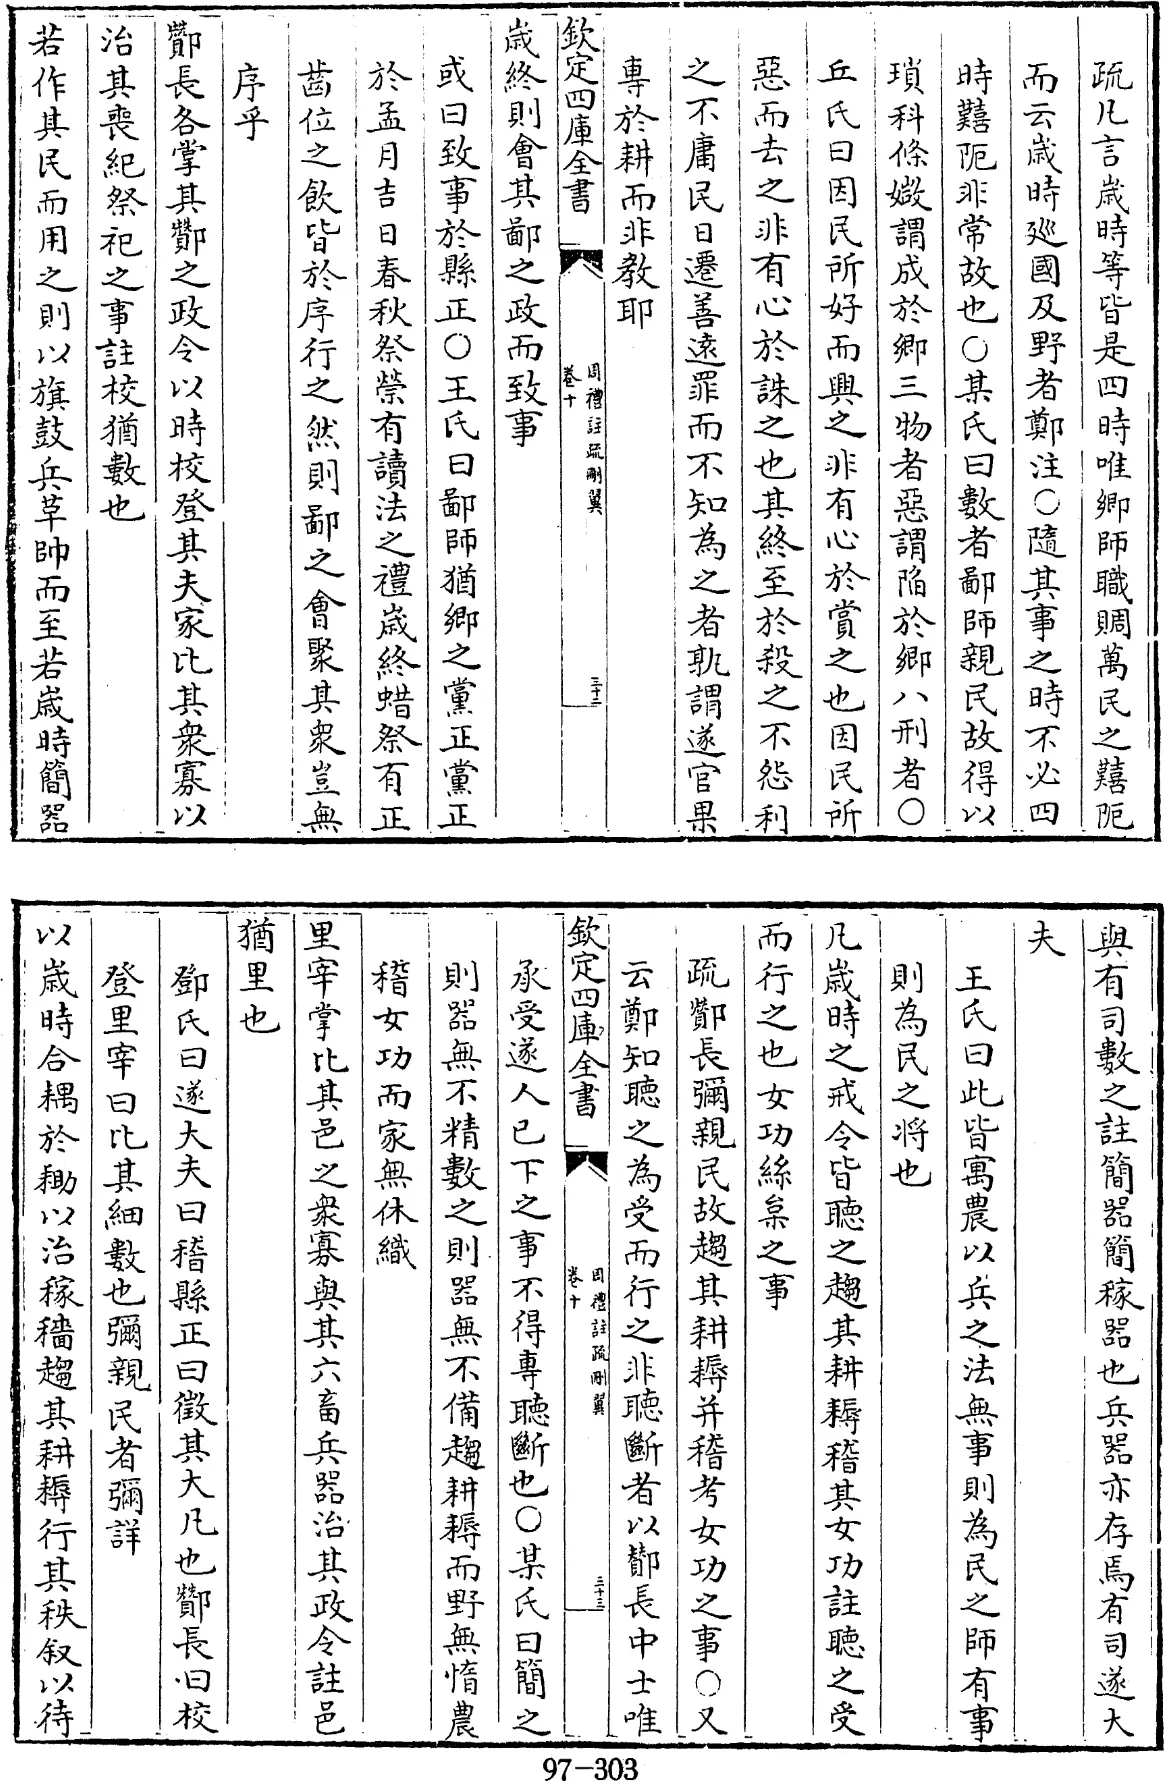 疏凡言歲時等皆是四時唯鄉師職賙萬民之囏阨
而云歲時廵國及野者鄭注○隨其事之時不必四
時囏阨非常故也○某氏曰數者鄙師親民故得以
瑣科條媺謂成於鄉三物者惡謂陷於鄉八刑者○
丘氏曰因民所好而興之非有心於賞之也因民所
惡而去之非有心於誅之也其終至於殺之不怨利
之不庸民日遷善遠罪而不知為之者孰謂遂官果
專於耕而非教耶
欽定四庫全書
周禮註疏刪翼
卷十
三十二
歲終則會其鄙之政而致事
或曰致事於縣正○王氏曰鄙師猶鄉之黨正黨正
於孟月吉日春秋祭禜有讀法之禮歲終蜡祭有正
齒位之飲皆於序行之然則鄙之會聚其衆豈無
序乎
酇長各掌其酇之政令以時校登其夫家比其衆寡以
治其喪紀祭祀之事註校猶數也
若作其民而用之則以旗鼓兵革帥而至若歲時簡器
與有司數之註簡器簡稼器也兵器亦存焉有司遂大
夫
王氏曰此皆寓農以兵之法無事則為民之師有事
則為民之將也
凡歲時之戒令皆聽之趨其耕耨稽其女功註聽之受
而行之也女功絲枲之事
疏酇長彌親民故趨其耕耨并稽考女功之事○又
云鄭知聽之為受而行之非聽斷者以酇長中士唯
欽定四庫全書
周禮註疏刪翼
卷十
三十三
承受遂人已下之事不得專聽斷也○某氏曰簡之
則器無不精數之則器無不備趨耕耨而野無惰農
稽女功而家無休織
里宰掌比其邑之衆寡與其六畜兵器治其政令註邑
猶里也
鄧氏曰遂大夫曰稽縣正曰徵其大凡也酇長曰校
登里宰曰比其細數也彌親民者彌詳
以歲時合耦於耡以治稼穡趨其耕耨行其秩叙以待
97-303